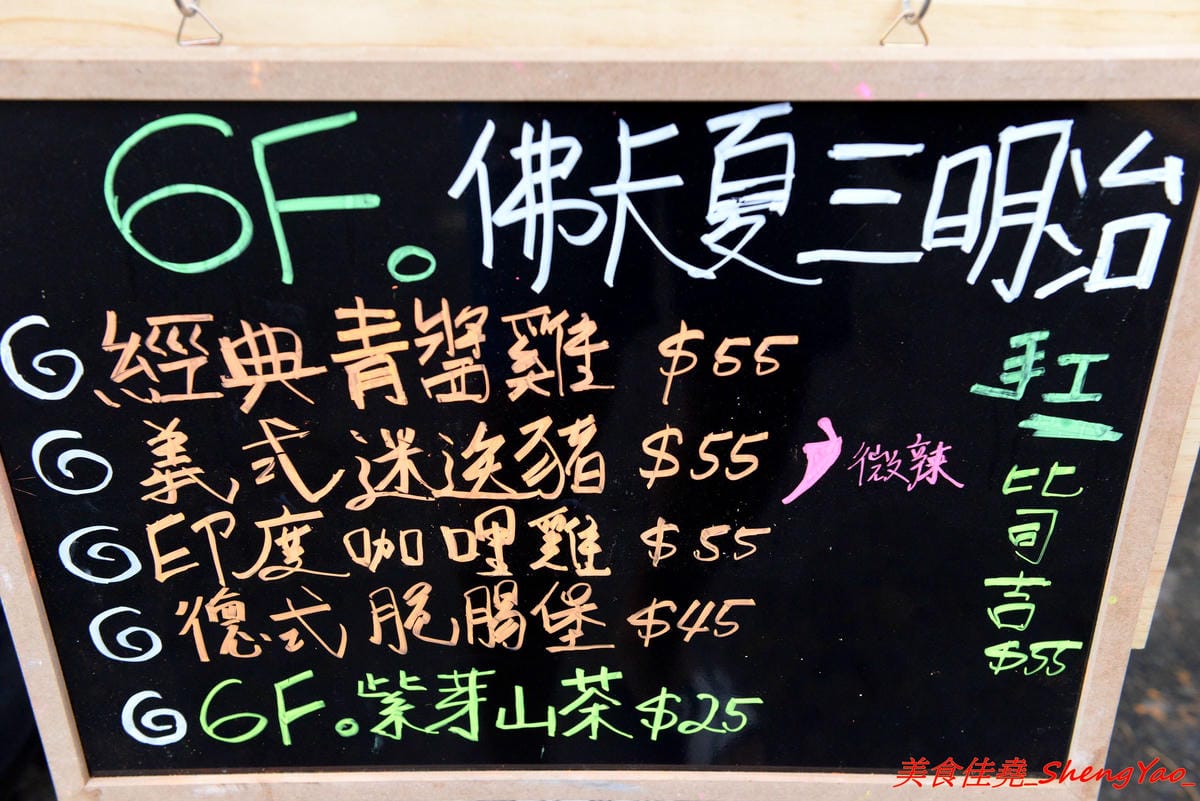 6F. 佛卡夏三明治
經典青醬雞 $55
義式迷迭豬 $55 微辣
印度咖哩雞 $55
德式脆腸堡 $45
6F. 紫芽山茶 $25
手工
比司吉
$55
美食佳堯_ShengYao_